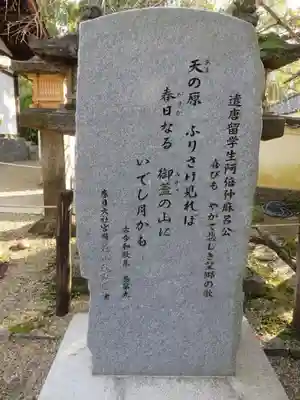 遣唐留学生阿倍仲麻呂公
喜びも やがて悲しき望郷の歌
天の原 ふりさけ見れば
あま
春日なる 御蓋の山に
かすが みかさ
いでし月かも
古今和歌集 巻第九
春日大社宮司
書